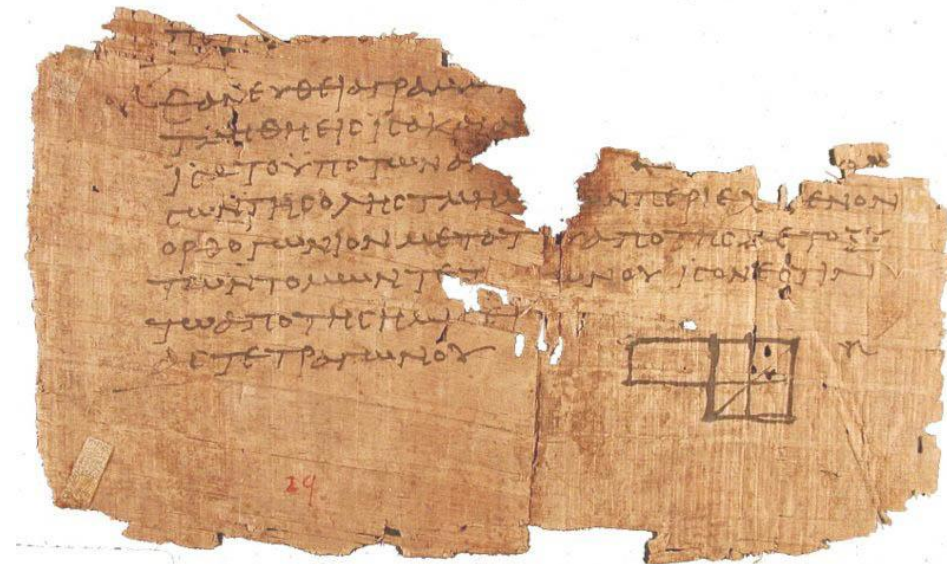 ΕΑΝ ΕΥΘΕΙΑ ΓΡΑΜΜ
ΤΜΗΘΗ ΕΙϹ ΙϹΑ Κ
ΙϹΑ ΤΟ ΥΠΟ ΤΩΝ Α
ϹΩΝ ΤΗϹ ΟΛΗϹ ΤΜΗΜ Ν ΠΕΡΙΕΧ ΜΕΝΟΝ
ΟΡΘΟΓΩΝΙΟΝ ΜΕΤΑ Τ ΑΠΟ ΤΗϹ ΜΕΤΟΞΥ
ΤΩΝ ΤΟΜΩΝ ΤΕΤ ΩΝΟΥ ΙϹΟΝ ΕϹΤΙΝ
ΤΩ ΑΠΟ ΤΗϹ ΗΜΙ
ΑϹ ΤΕΤΡΑΓΩΝΟΥ
29